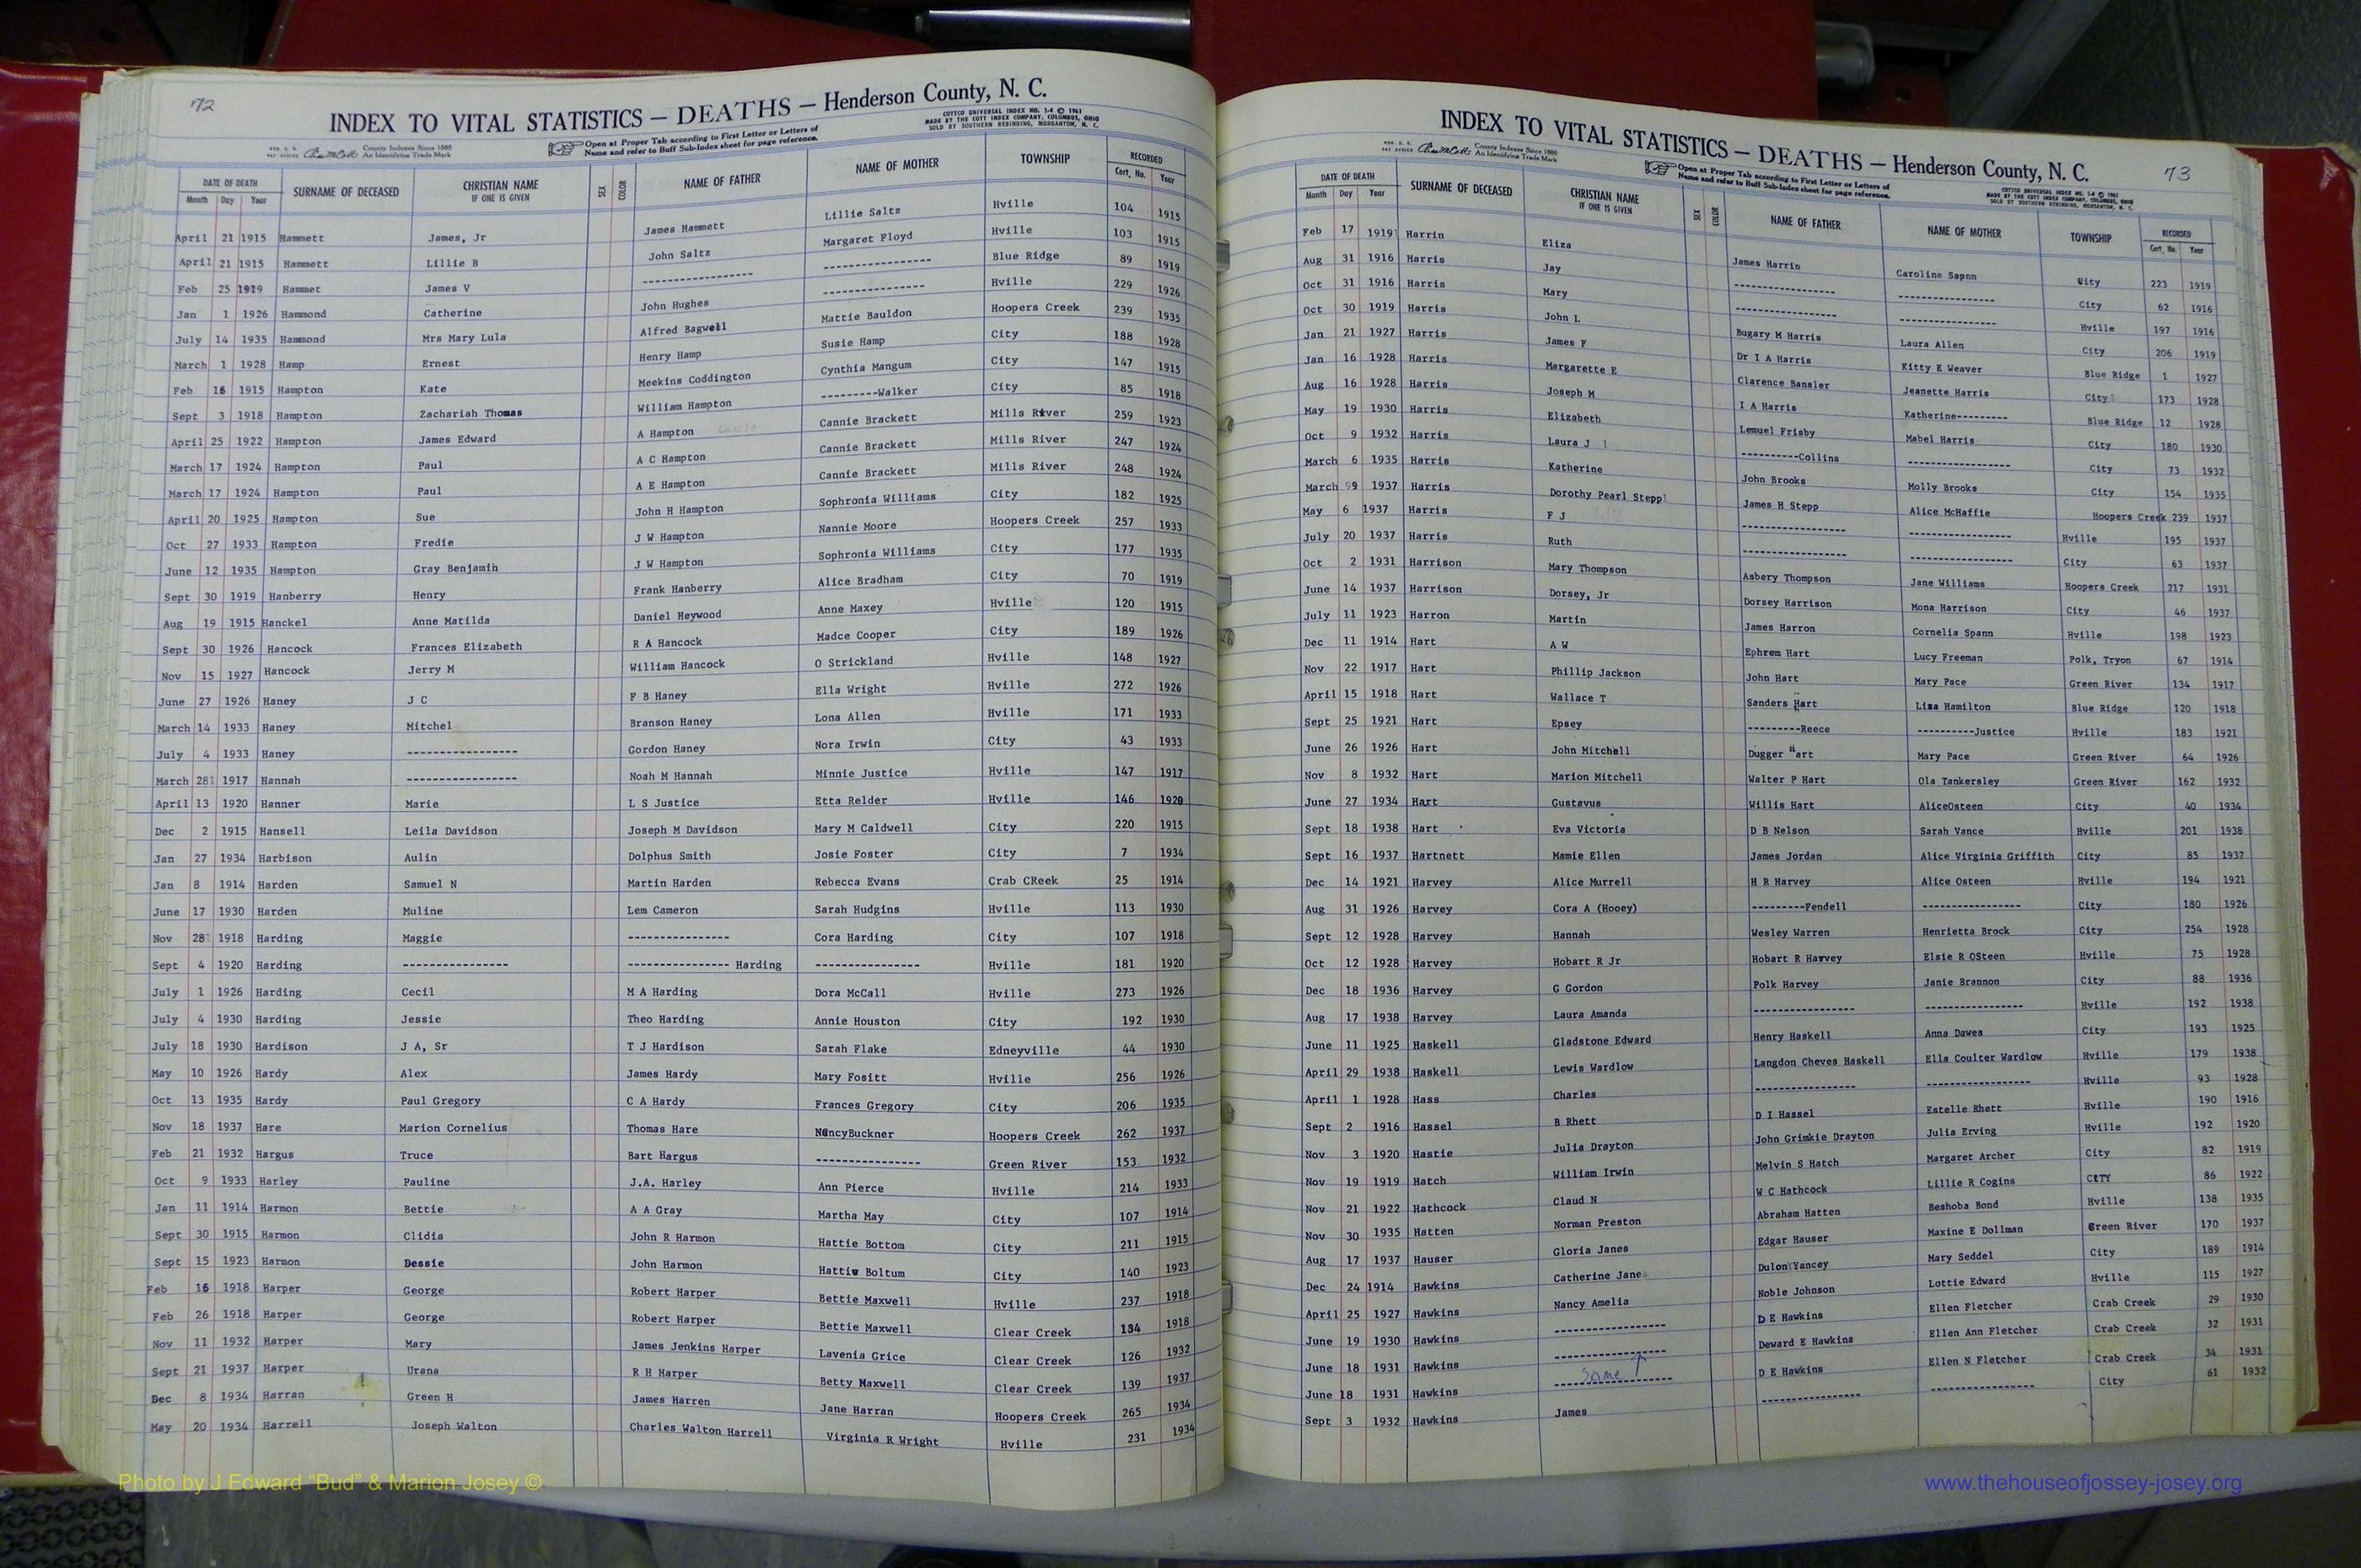 72
INDEX TO VITAL STATISTICS — DEATHS — Henderson County, N. C.
COTTCO UNIVERSAL INDEX NO. 1-4 © 1961
MADE BY THE COTT INDEX COMPANY, COLUMBUS, OHIO
SOLD BY SOUTHERN REBINDING, MORGANTON, N. C.
REG. U. S. PAT OFFICE County Indexes Since 1888 An Identifying Trade Mark
Open at Proper Tab according to First Letter or Letters of
Name and refer to Buff Sub-Index sheet for page reference.
DATE OF DEATH SURNAME OF DECEASED CHRISTIAN NAME IF ONE IS GIVEN SEX COLOR NAME OF FATHER NAME OF MOTHER TOWNSHIP RECORDED
Month Day Year Cert. No. Year
April 21 1915 Hammett James, Jr James Hammett Lillie Saltz Hville 104 1915
April 21 1915 Hammett Lillie B John Saltz Margaret Floyd Hville 103 1915
Feb 25 1919 Hammet James V ---------------- --------------- Blue Ridge 89 1919
Jan 1 1926 Hammond Catherine John Hughes --------------- Hville 229 1926
July 14 1935 Hammond Mrs Mary Lula Alfred Bagwell Mattie Bauldon Hoopers Creek 239 1935
March 1 1928 Hamp Ernest Henry Hamp Susie Hamp City 188 1928
Feb 16 1915 Hampton Kate Meekins Coddington Cynthia Mangum City 147 1915
Sept 3 1918 Hampton Zachariah Thomas William Hampton ---------Walker City 85 1918
April 25 1922 Hampton James Edward A Hampton Cannie Brackett Mills River 259 1923
March 17 1924 Hampton Paul A C Hampton Cannie Brackett Mills River 247 1924
March 17 1924 Hampton Paul A E Hampton Cannie Brackett Mills River 248 1924
April 20 1925 Hampton Sue John H Hampton Sophronia Williams City 182 1925
Oct 27 1933 Hampton Fredie J W Hampton Nannie Moore Hoopers Creek 257 1933
June 12 1935 Hampton Gray Benjamin J W Hampton Sophronia Williams City 177 1935
Sept 30 1919 Hanberry Henry Frank Hanberry Alice Bradham City 70 1919
Aug 19 1915 Hanckel Anne Matilda Daniel Heywood Anne Maxey Hville 120 1915
Sept 30 1926 Hancock Frances Elizabeth R A Hancock Madce Cooper City 189 1926
Nov 15 1927 Hancock Jerry M William Hancock O Strickland Hville 148 1927
June 27 1926 Haney J C F B Haney Ella Wright Hville 272 1926
March 14 1933 Haney Mitchel Branson Haney Lona Allen Hville 171 1933
July 4 1933 Haney ---------------- Gordon Haney Nora Irwin City 43 1933
March 28 1917 Hannah ---------------- Noah M Hannah Minnie Justice Hville 147 1917
April 13 1920 Hanner Marie L S Justice Etta Relder Hville 146 1920
Dec 2 1915 Hansell Leila Davidson Joseph M Davidson Mary M Caldwell City 220 1915
Jan 27 1934 Harbison Aulin Dolphus Smith Josie Foster City 7 1934
Jan 8 1914 Harden Samuel N Martin Harden Rebecca Evans Crab CReek 25 1914
June 17 1930 Harden Muline Lem Cameron Sarah Hudgins Hville 113 1930
Nov 28 1918 Harding Maggie --------------- Cora Harding City 107 1918
Sept 4 1920 Harding --------------- --------------- Harding --------------- Hville 181 1920
July 1 1926 Harding Cecil M A Harding Dora McCall Hville 273 1926
July 4 1930 Harding Jessie Theo Harding Annie Houston City 192 1930
July 18 1930 Hardison J A, Sr T J Hardison Sarah Flake Edneyville 44 1930
May 10 1926 Hardy Alex James Hardy Mary Fositt Hville 256 1926
Oct 13 1935 Hardy Paul Gregory C A Hardy Frances Gregory City 206 1935
Nov 18 1937 Hare Marion Cornelius Thomas Hare NancyBuckner Hoopers Creek 262 1937
Feb 21 1932 Hargus Truce Bart Hargus --------------- Green River 153 1932
Oct 9 1933 Harley Pauline J.A. Harley Ann Pierce Hville 214 1933
Jan 11 1914 Harmon Bettie A A Gray Martha May City 107 1914
Sept 30 1915 Harmon Clidia John R Harmon Hattie Bottom City 211 1915
Sept 15 1923 Harmon Dessie John Harmon Hattie Boltum City 140 1923
Feb 16 1918 Harper George Robert Harper Bettie Maxwell Hville 237 1918
Feb 26 1918 Harper George Robert Harper Bettie Maxwell Clear Creek 134 1918
Nov 11 1932 Harper Mary James Jenkins Harper Lavenia Grice Clear Creek 126 1932
Sept 21 1937 Harper Urana R H Harper Betty Maxwell Clear Creek 139 1937
Dec 8 1934 Harran Green H James Harren Jane Harran Hoopers Creek 265 1934
May 20 1934 Harrell Joseph Walton Charles Walton Harrell Virginia R Wright Hville 231 1934
73
INDEX TO VITAL STATISTICS — DEATHS — Henderson County, N. C.
REG. U. S. PAT OFFICE County Indexes Since 1888 An Identifying Trade Mark
Open at Proper Tab according to First Letter or Letters of
Name and refer to Buff Sub-Index sheet for page reference.
COTTCO UNIVERSAL INDEX NO. 1-4 © 1961
MADE BY THE COTT INDEX COMPANY, COLUMBUS, OHIO
SOLD BY SOUTHERN REBINDING, MORGANTON, N. C.
DATE OF DEATH SURNAME OF DECEASED CHRISTIAN NAME IF ONE IS GIVEN SEX COLOR NAME OF FATHER NAME OF MOTHER TOWNSHIP RECORDED
Month Day Year Cert. No. Year
Feb 17 1919 Harrin Eliza James Harrin Caroline Sapnn City 223 1919
Aug 31 1916 Harris Jay --------------- --------------- City 62 1916
Oct 31 1916 Harris Mary --------------- --------------- Hville 197 1916
Oct 30 1919 Harris John L Bugary M Harris Laura Allen City 206 1919
Jan 21 1927 Harris James F Dr I A Harris Kitty E Weaver Blue Ridge 1 1927
Jan 16 1928 Harris Margarette E Clarence Bansler Jeanette Harris City 173 1928
Aug 16 1928 Harris Joseph M I A Harris Katherine-------- Blue Ridge 12 1928
May 19 1930 Harris Elizabeth Lemuel Frisby Mabel Harris City 180 1930
Oct 9 1932 Harris Laura J ---------Collins --------------- City 73 1932
March 6 1935 Harris Katherine John Brooks Molly Brooks City 154 1935
March 1937 Harris Dorothy Pearl Stepp James H Stepp Alice McHaffie Hoopers Creek 239 1937
May 6 1937 Harris F J --------------- --------------- Hville 195 1937
July 20 1937 Harris Ruth --------------- --------------- City 63 1937
Oct 2 1931 Harrison Mary Thompson Asbery Thompson Jane Williams Hoopers Creek 217 1931
June 14 1937 Harrison Dorsey, Jr Dorsey Harrison Mona Harrison City 46 1937
July 11 1923 Harron Martin James Harron Cornelia Spann Hville 198 1923
Dec 11 1914 Hart A W Ephrem Hart Lucy Freeman Polk, Tryon 67 1914
Nov 22 1917 Hart Phillip Jackson John Hart Mary Pace Green River 134 1917
April 15 1918 Hart Wallace T Sanders Hart Liza Hamilton Blue Ridge 120 1918
Sept 25 1921 Hart Epsey --------Reece ----------Justice Hville 183 1921
June 26 1926 Hart John Mitchell Dugger Hart Mary Pace Green River 64 1926
Nov 8 1932 Hart Marion Mitchell Walter P Hart Ola Tankersley Green River 162 1932
June 27 1934 Hart Gustavus Willis Hart AliceOsteen City 40 1934
Sept 18 1938 Hart Eva Victoria D B Nelson Sarah Vance Hville 201 1938
Sept 16 1937 Hartnett Mamie Ellen James Jordan Alice Virginia Griffith City 85 1937
Dec 14 1921 Harvey Alice Murrell H R Harvey Alice Osteen Hville 194 1921
Aug 31 1926 Harvey Cora A (Hooey) --------Fendell --------------- City 180 1926
Sept 12 1928 Harvey Hannah Wesley Warren Henrietta Brock City 254 1928
Oct 12 1928 Harvey Hobart R Jr Hobart R Harvey Elsie R OSteen Hville 75 1928
Dec 18 1936 Harvey G Gordon Polk Harvey Janie Brannon City 88 1936
Aug 17 1938 Harvey Laura Amanda --------------- --------------- Hville 192 1938
June 11 1925 Haskell Gladstone Edward Henry Haskell Anna Dawes City 193 1925
April 29 1938 Haskell Lewis Wardlow Langdon Cheves Haskell Ella Coulter Wardlow Hville 179 1938
April 1 1928 Hass Charles --------------- --------------- Hville 93 1928
Sept 2 1916 Hassel B Rhett D I Hassel Estelle Rhett Hville 190 1916
Nov 3 1920 Hastie Julia Drayton John Grimkie Drayton Julia Erving Hville 192 1920
Nov 19 1919 Hatch William Irwin Melvin S Hatch Margaret Archer City 82 1919
Nov 21 1922 Hathcock Claud N W C Hathcock Lillie R Cogins CITY 86 1922
Nov 30 1935 Hatten Norman Preston Abraham Hatten Beshoba Bond Hville 138 1935
Aug 17 1937 Hauser Gloria Janes Edgar Hauser Maxine E Dollman Green River 170 1937
Dec 24 1914 Hawkins Catherine Janes Dulon Yancey Mary Seddel City 189 1914
April 25 1927 Hawkins Nancy Amelia Noble Johnson Lottie Edward Hville 115 1927
June 19 1930 Hawkins ---------------- D E Hawkins Ellen Fletcher Crab Creek 29 1930
June 18 1931 Hawkins ---------------- Deward E Hawkins Ellen Ann Fletcher Crab Creek 32 1931
Same ↑
June 18 1931 Hawkins ---------------- D E Hawkins Ellen N Fletcher Crab Creek 34 1931
Sept 3 1932 Hawkins James --------------- --------------- City 61 1932
Photo by J Edward “Bud” & Marion Josey ©
www.thehouseofjossey-josey.org